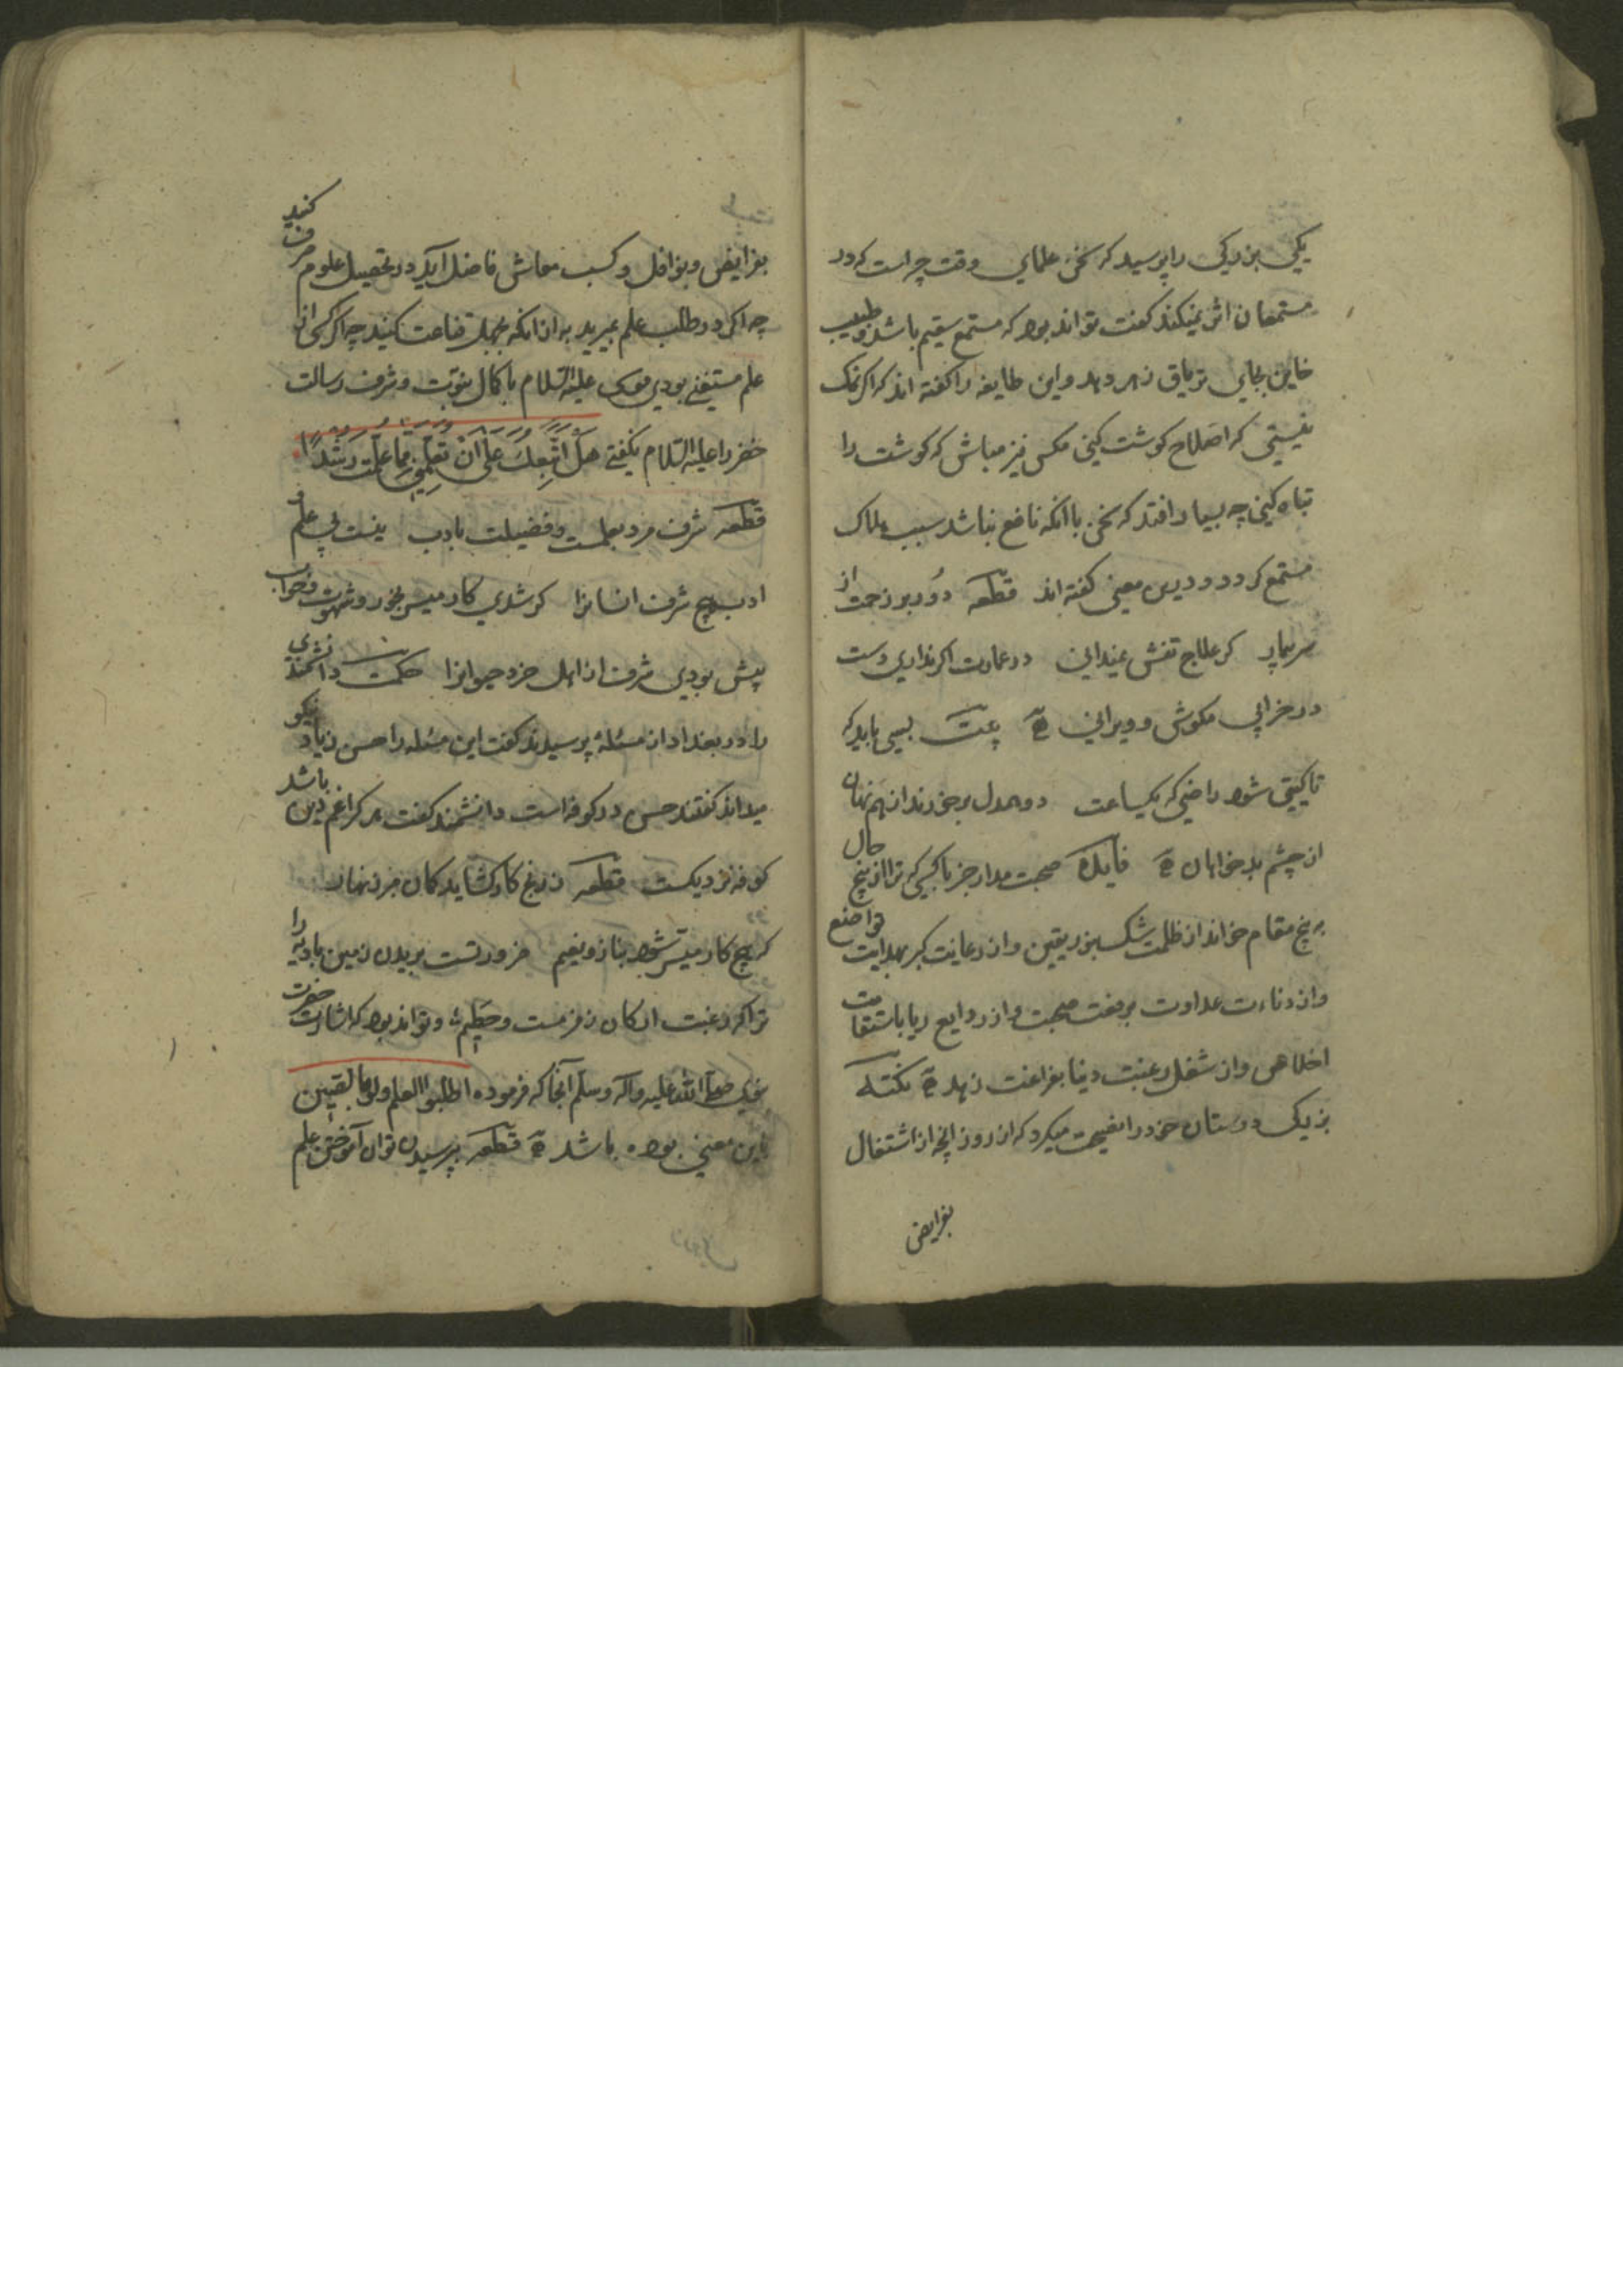 یکی بزرکی را پرسید که سخن علمای وقت چراست که در
مستمعان اثر نمیکند کفت تواند بود که مستمع سقیم باشد و طبیب
خاین بجای تریاق زهر دهد و این طایفه را کفته اند که اکر نمک
نیستی که اصلاح کوشت کنی مکس نیز مباش که کوشت را
تباه کنی چه بسیار افتد که سخن با آنکه نافع نباشد سبب هلاک
مستمع کردد و درین معنی کفته اند قطعه دور بر زحمت از
سر بیمار کر علاج تنش نمیدانی در عمارت اکر نداری دست
در خرابی مکوش و ویرانی بیت بسی باید که
تا کیتی شود راضی که یکساعت دو همدل برخورند از هم نهان
از چشم بدخواهان فایده صحبت مدار جز با کسی که ترا از پنج حال
بر پنج مقام خواند از ظلمت شک بنور یقین و از رعایت کبر بهدایت تواضع
و از دناءت عداوت برفعت صحبت و از روایع ریا باستقامت
اخلاص و از شغل رغبت دنیا بفراغت زهد نکته
بزرکی دوستان خود را نصیحت میکرد که از روز آنچه از اشتغال
بفرایض
بفرایض و نوافل و کسب معاش فاضل آید در تحصیل علوم صرف کنید
چه اکر در طلب علم بمیرید به از آنکه بجهل قناعت کنید چه اکر کسی از
علم مستغنی بودی موسی علیه السلام با کمال نبوت و شرف رسالت
خضر را علیه السلام نکفتی هَلْ اَتَّبِعُكَ عَلٰى اَنْ تُعَلِّمَنِ مِمَّا عُلِّمْتَ رُشْدًا
قطعه شرف مرد بعلمست و فضیلت بادب نیست بی علم و
ادب هیچ شرف انسانرا کر شدی کار میسر بخور و شهوت و خواب
پیش بودی شرف از اهل خرد حیوانرا حکمت دانشمندی
را در بغداد از مسئلهٔ پرسیدند کفت این مسئله را حسن زیاد نیکو
میداند کفتند حسن در کوفه است دانشمند کفت هر کرا غم دین باشد
کوفه نزدیکست قطعه ز رنج کار کشاید کمان مبر زنهار
که هیچ کار میسر شود بناز و نعیم ضرورتست بریدن زمین بادیه را
ترا که رغبت ارکان زمزمست و حطیم و تواند بود که اشارت حضرت
نبوی صلی الله علیه وآله وسلم آنجا که فرموده اطلبوا العلم ولو بالصین
باین معنی بوده باشد قطعه بپرسیدن توان آموختن علم